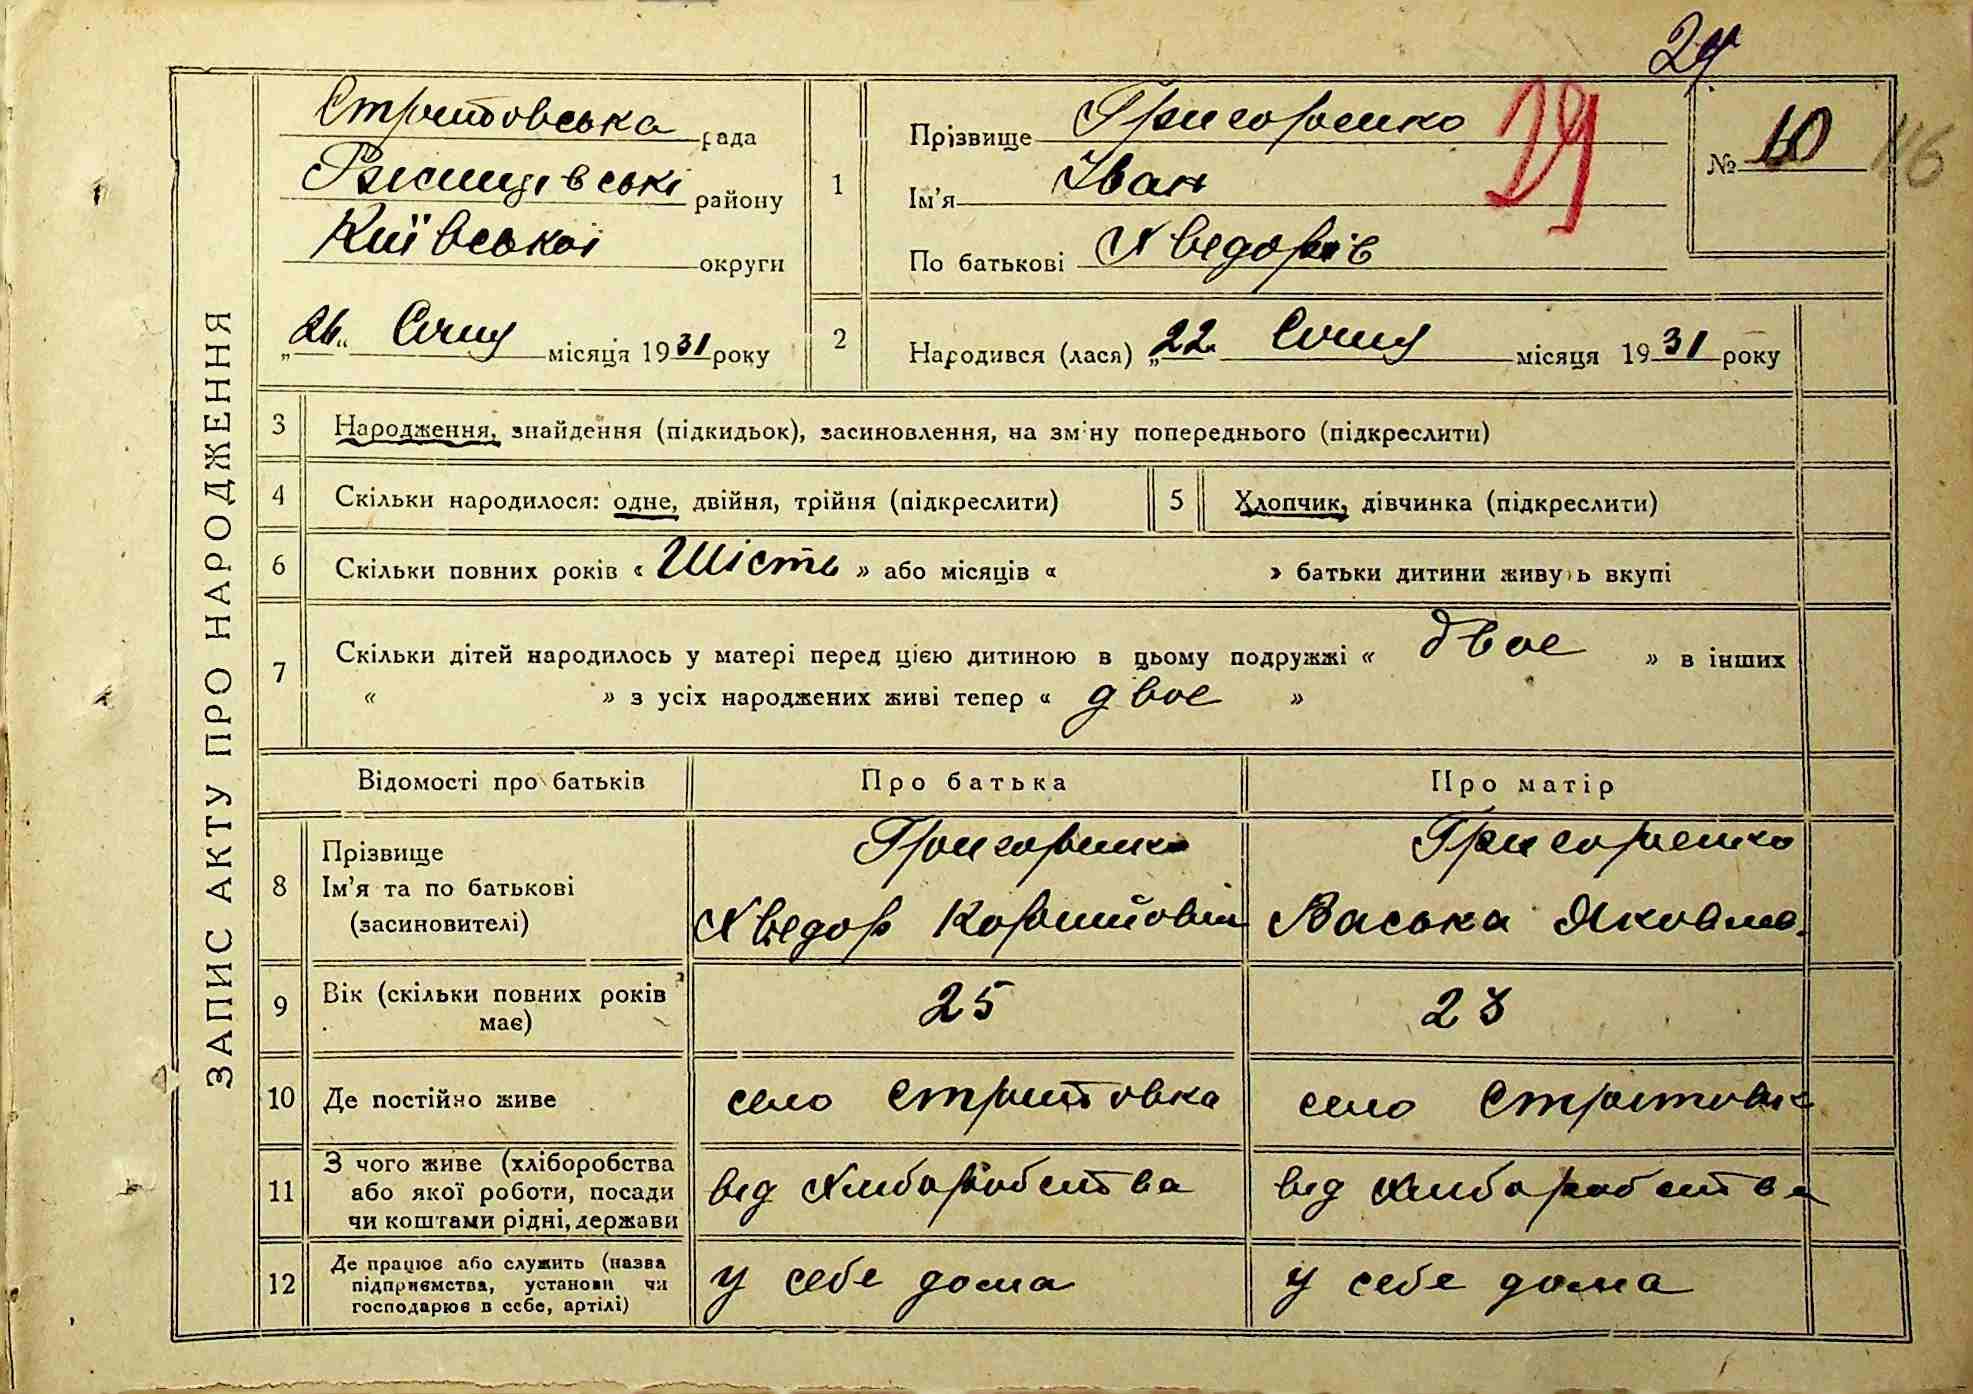 29
ЗАПИС АКТУ ПРО НАРОДЖЕННЯ
Стритовська рада
району
Київської округи
„26“ Січня місяця 1931 року
1
Прізвище Григоренко
Ім'я Іван
По батькові Хведорів
29
№ 10
116
2
Народився (лася) „22“ Січня місяця 1931 року
3
Народження, знайдення (підкидьок), засиновлення, на зміну попереднього (підкреслити)
4
Скільки народилося: одне, двійня, трійня (підкреслити)
5
Хлопчик, дівчинка (підкреслити)
6
Скільки повних років « Шість » або місяців « » батьки дитини живуть вкупі
7
Скільки дітей народилось у матері перед цією дитиною в цьому подружжі « двоє » в інших
« » з усіх народжених живі тепер « двоє »
Відомості про батьків
Про батька
Про матір
8
Прізвище
Ім'я та по батькові
(засиновителі)
Григоренко
Хведор
Григоренко
Васька Яковлів.
9
Вік (скільки повних років
має)
25
23
10
Де постійно живе
село Стритовка
село Стритовка
11
З чого живе (хліборобства
або якої роботи, посади
чи коштами рідні, держави
від хліборобства
від хліборобства
12
Де працює або служить (назва
підприємства, установи чи
господарює в себе, артілі)
у себе дома
у себе дома